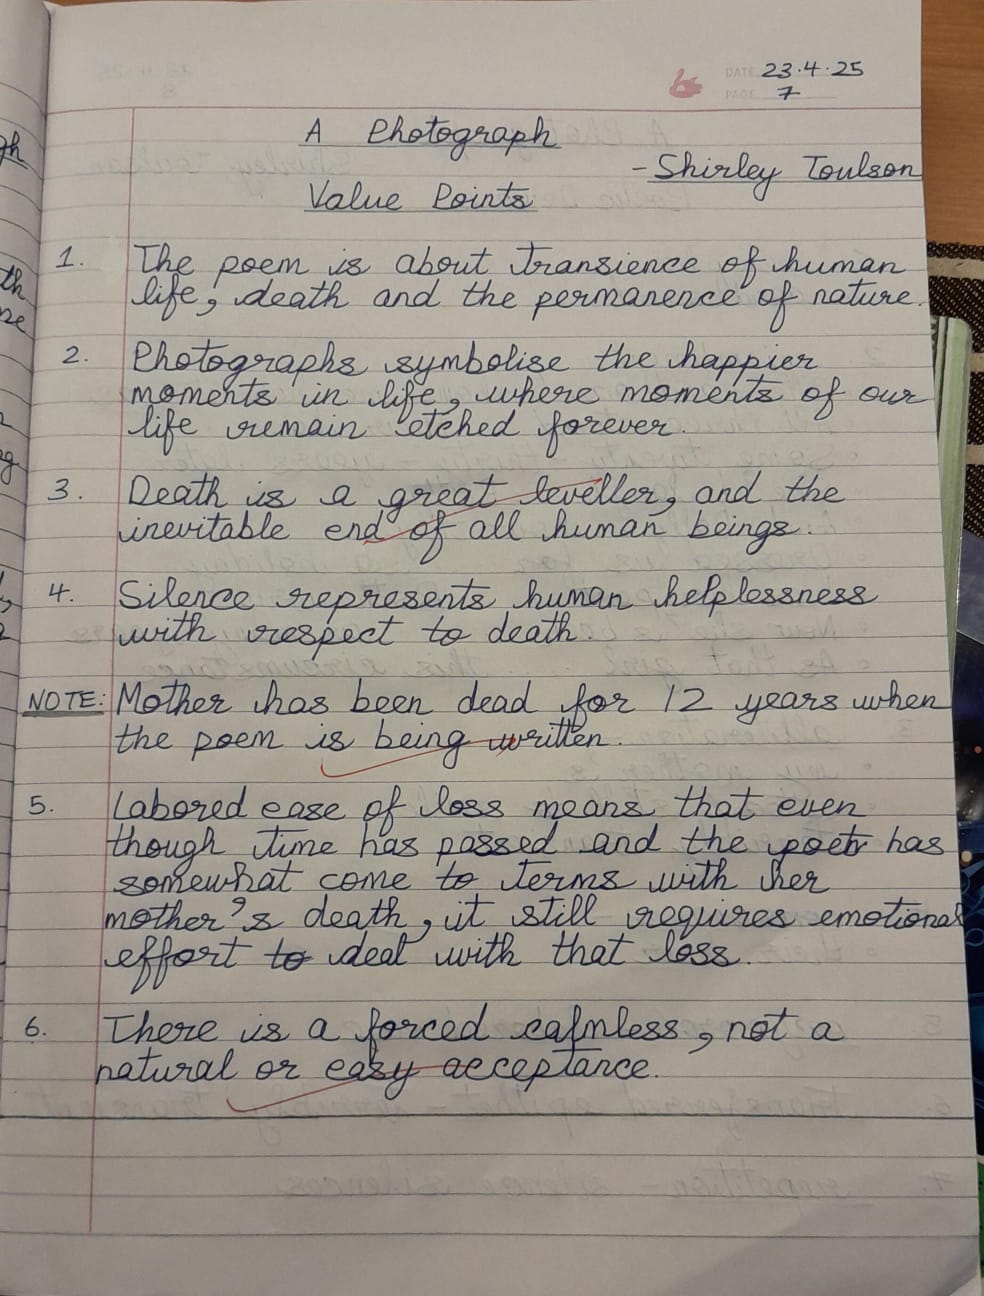 DATE 23.4.25
PAGE 7
A Photograph
-Shirley Toulson
Value Points
1. The poem is about transience of human
life, death and the permanence of nature.
2. Photographs symbolise the happier
moments in life, where moments of our
life remain etched forever.
3. Death is a great leveller, and the
inevitable end of all human beings.
4. Silence represents human helplessness
with respect to death.
NOTE: Mother has been dead for 12 years when
the poem is being written.
5. Labored ease of loss means that even
though time has passed and the poet has
somewhat come to terms with her
mother's death, it still requires emotional
effort to deal with that loss.
6. There is a forced calmless, not a
natural or easy acceptance.